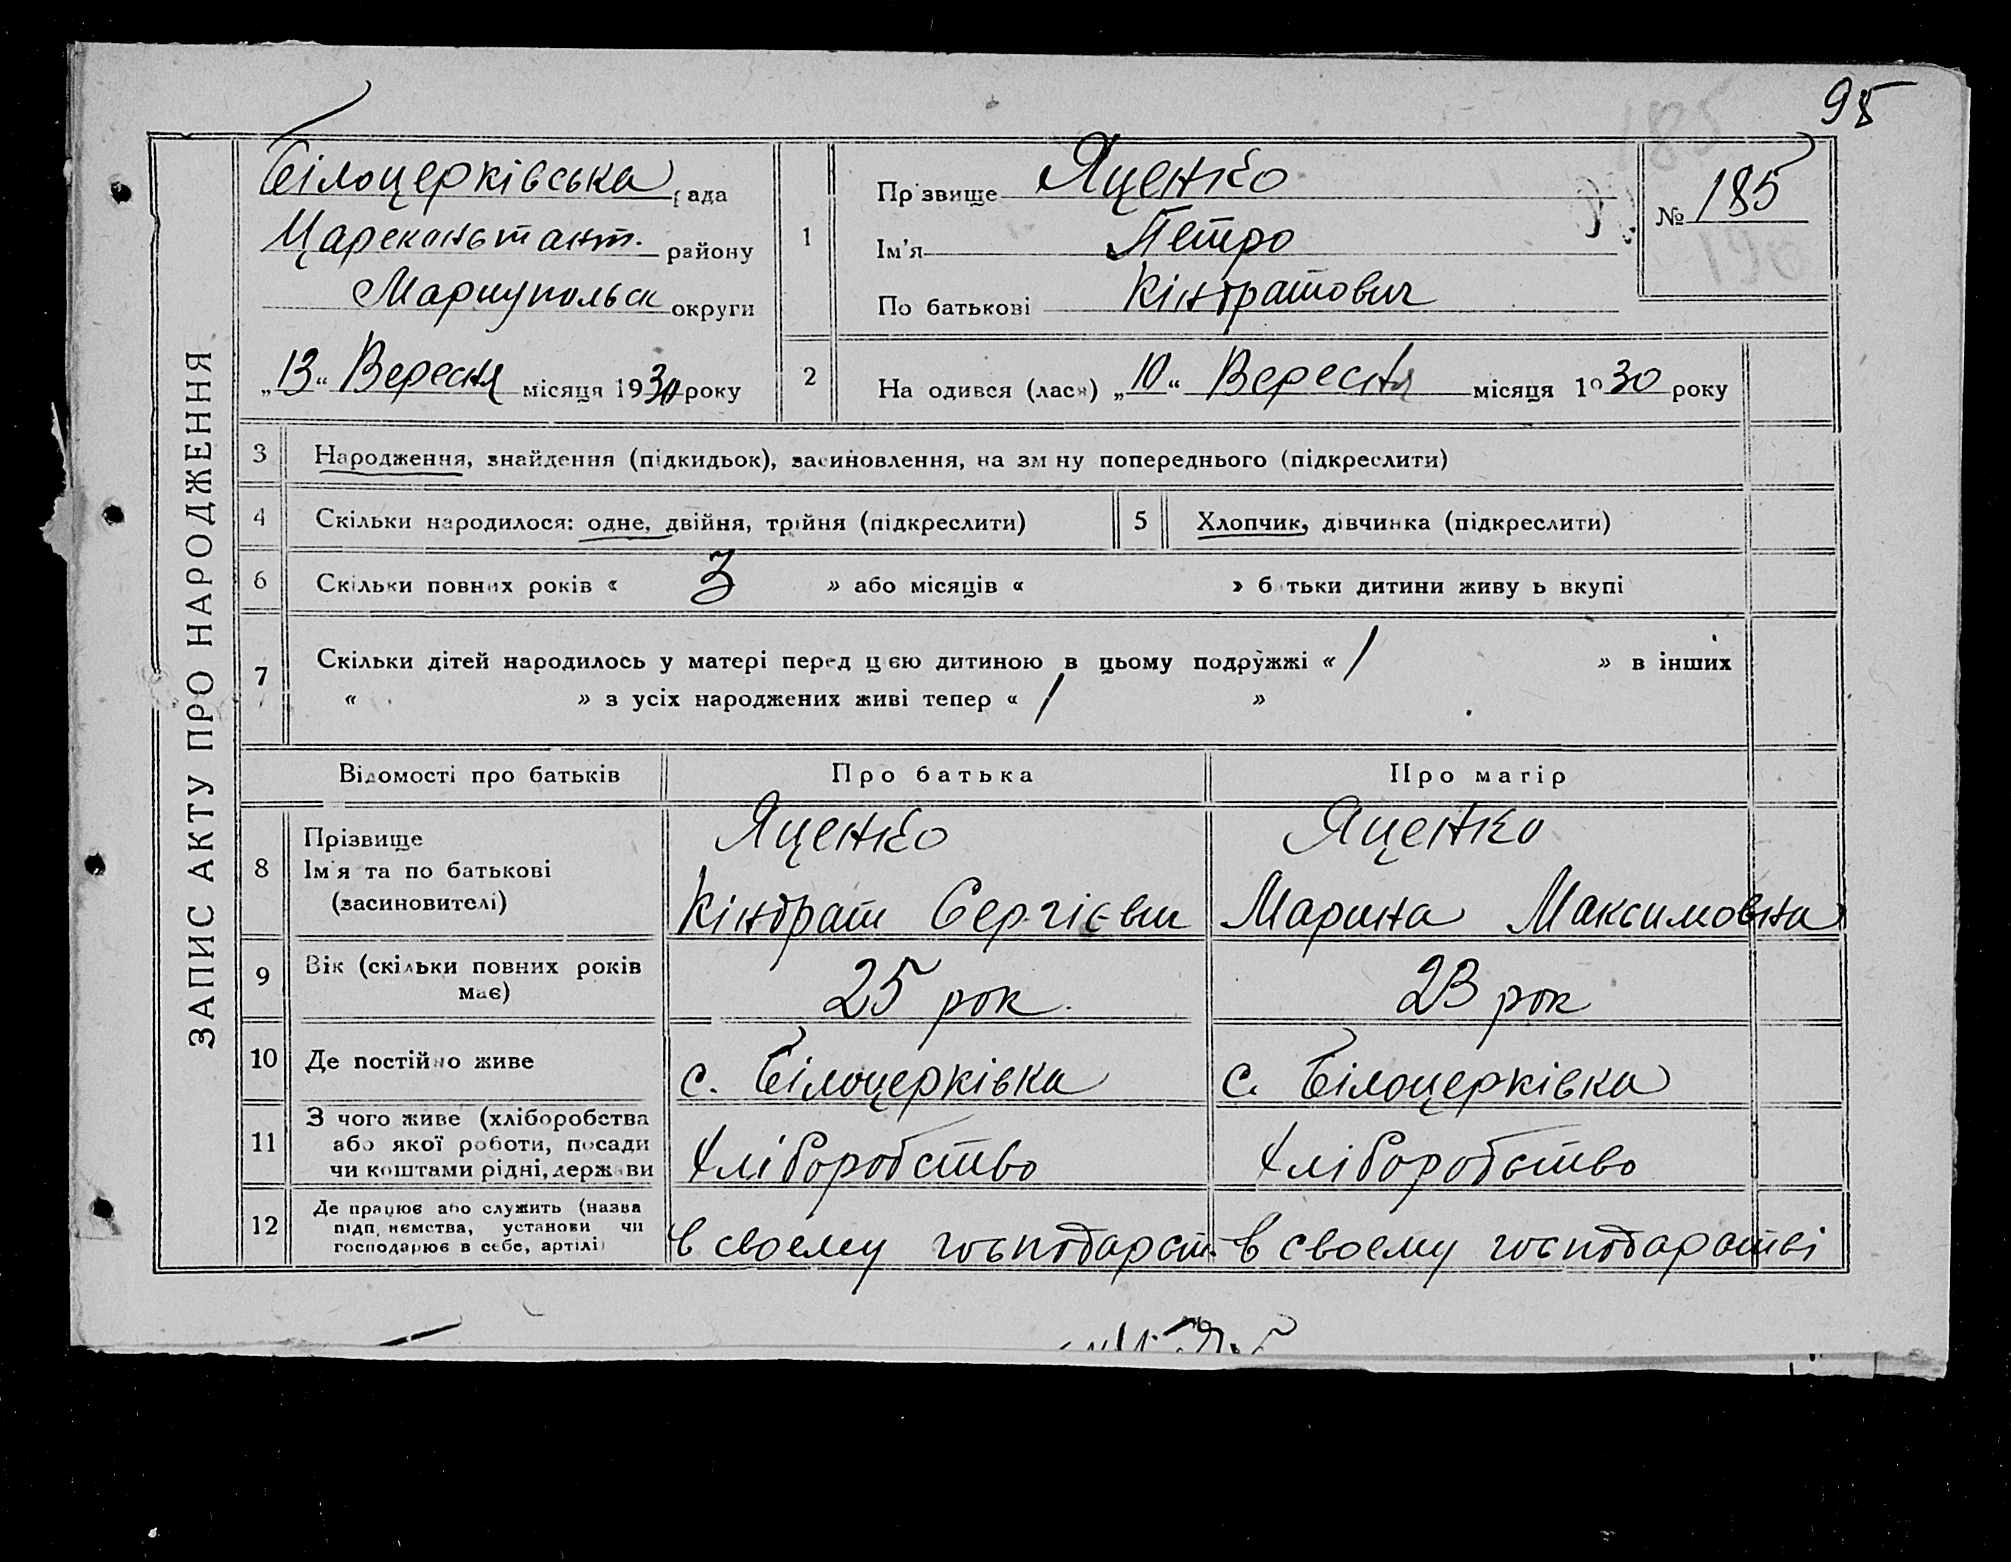 95
185
ЗАПИС АКТУ ПРО НАРОДЖЕННЯ
Білоцерківська рада
Мариупольск округи
„13“ Вересня місяця 1930 року
1
Прізвище Яценко
Ім’я Петро
По батькові Кіндратович
№ 185
190
2
Народився (лася) „10“ Вересня місяця 1930 року
3
Народження, знайдення (підкидьок), засиновлення, на зміну попереднього (підкреслити)
4
Скільки народилося: одне, двійня, трійня (підкреслити)
5
Хлопчик, дівчинка (підкреслити)
6
Скільки повних років « 3 » або місяців « » батьки дитини живуть вкупі
7
Скільки дітей народилось у матері перед цією дитиною в цьому подружжі « 1 » в інших
« » з усіх народжених живі тепер « 1 »
Відомості про батьків
Про батька
Про матір
8
Прізвище
Ім’я та по батькові
(засиновителі)
Яценко
Кіндрат Сергієвич
Яценко
Марина Максимовна
9
Вік (скільки повних років
має)
25 рок.
23 рок
10
Де постійно живе
с. Білоцерківка
с. Білоцерківка
11
З чого живе (хліборобства
або якої роботи, посади
чи коштами рідні, держави
Хліборобство
Хліборобство
12
Де працює або служить (назва
підприємства, установи чи
господарює в себе, артілі)
в своему господарст.
в своему господарстві